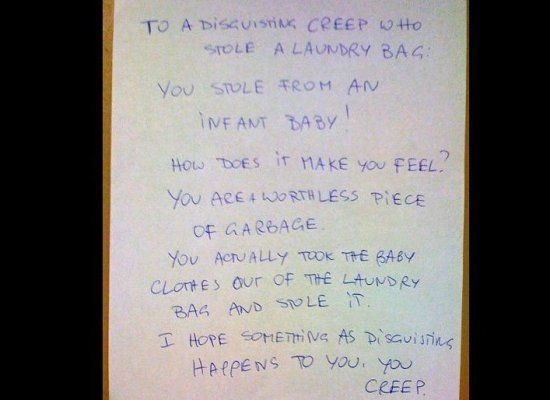 TO A DISGUISTING CREEP WHO
STOLE A LAUNDRY BAG:
YOU STOLE FROM AN
INFANT BABY!
HOW DOES IT MAKE YOU FEEL?
YOU ARE A WORTHLESS PIECE
OF GARBAGE.
YOU ACTUALLY TOOK THE BABY
CLOTHES OUT OF THE LAUNDRY
BAG AND STOLE IT.
I HOPE SOMETHING AS DISGUISTING
HAPPENS TO YOU. YOU
CREEP.